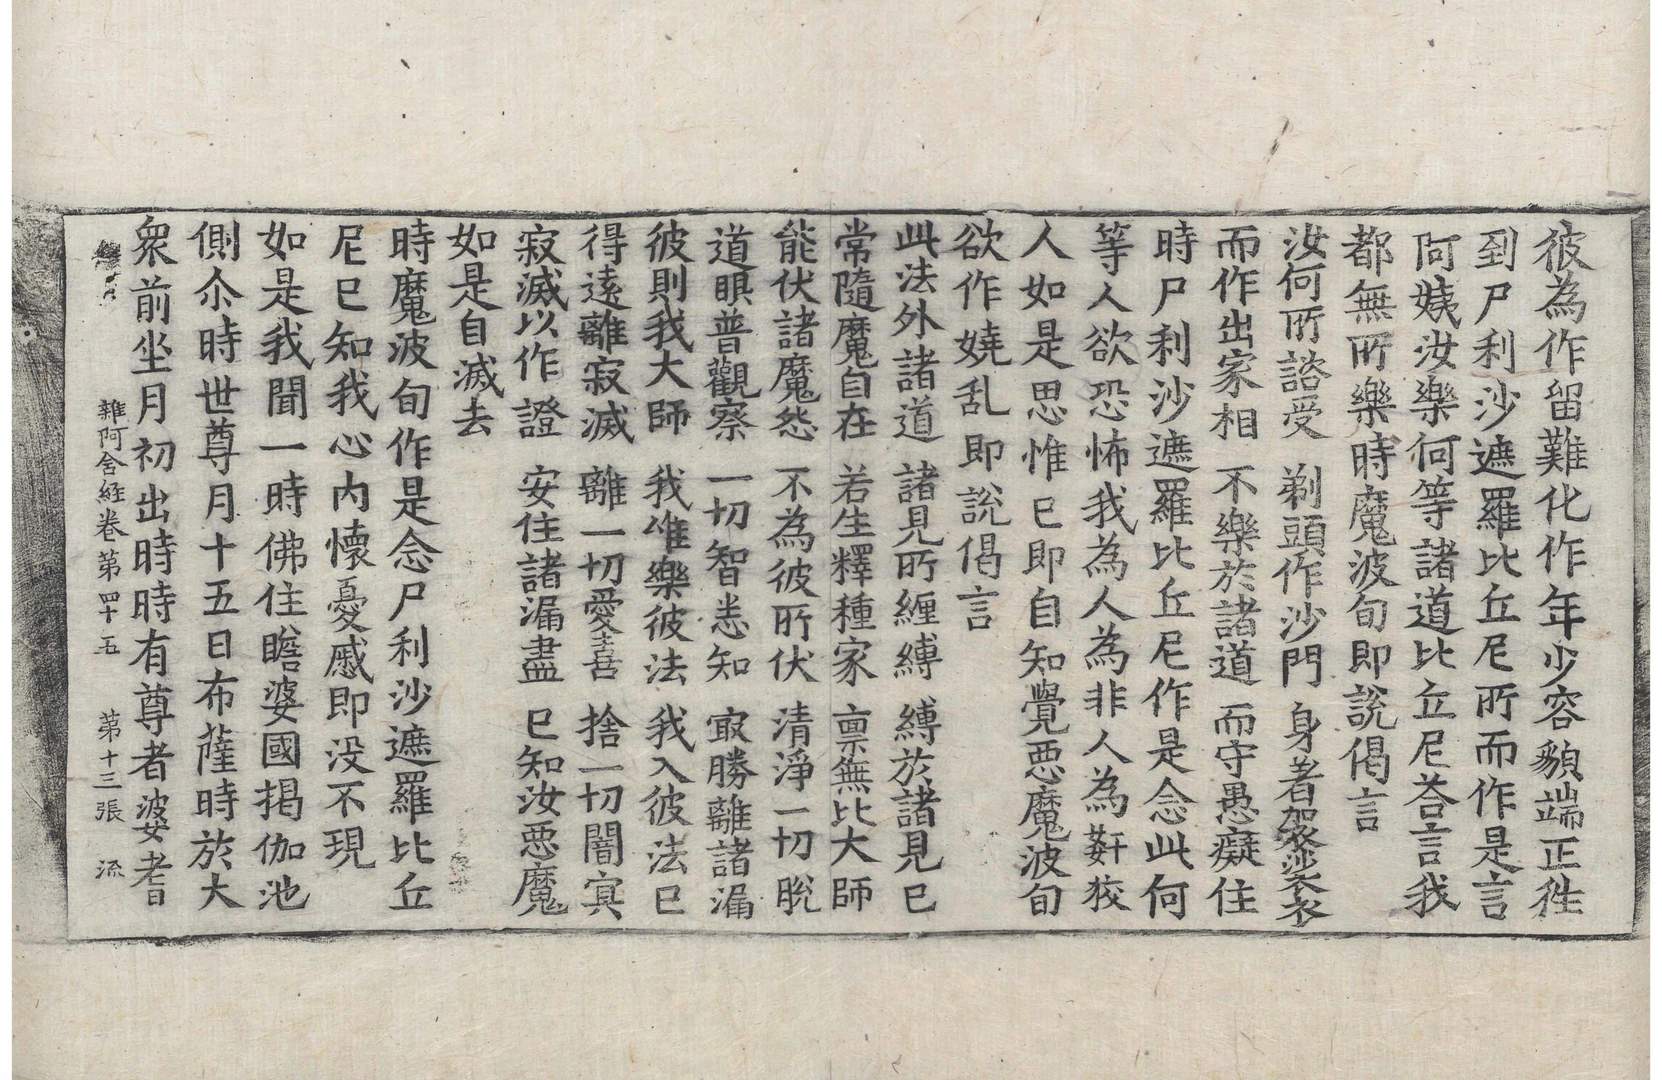 彼為作留難化作年少容貌端正往
到尸利沙遮羅比丘尼所而作是言
阿姨汝樂何等諸道比丘尼荅言我
都無所樂時魔波旬即說偈言
汝何所諮受 剃頭作沙門 身著袈裟衣
而作出家相 不樂於諸道 而守愚癡住
時尸利沙遮羅比丘尼作是念此何
等人欲恐怖我為人為非人為姧狡
人如是思惟已即自知覺惡魔波旬
欲作嬈乱即說偈言
此法外諸道 諸見所纏縛 縛於諸見已
常隨魔自在 若生釋種家 禀無比大師
能伏諸魔怨 不為彼所伏 清淨一切脫
道眼普觀察 一切智悉知 㝡勝離諸漏
彼則我大師 我唯樂彼法 我入彼法已
得遠離寂滅 離一切愛喜 捨一切闇冥
寂滅以作證 安住諸漏盡 已知汝惡魔
如是自滅去
時魔波旬作是念尸利沙遮羅比丘
尼已知我心内懷憂慼即没不現
如是我聞一時佛住瞻婆國揭伽池
側尒時世尊月十五日布薩時於大
衆前坐月初出時時有尊者婆耆
雜阿含経卷第四十五 第十三張 流